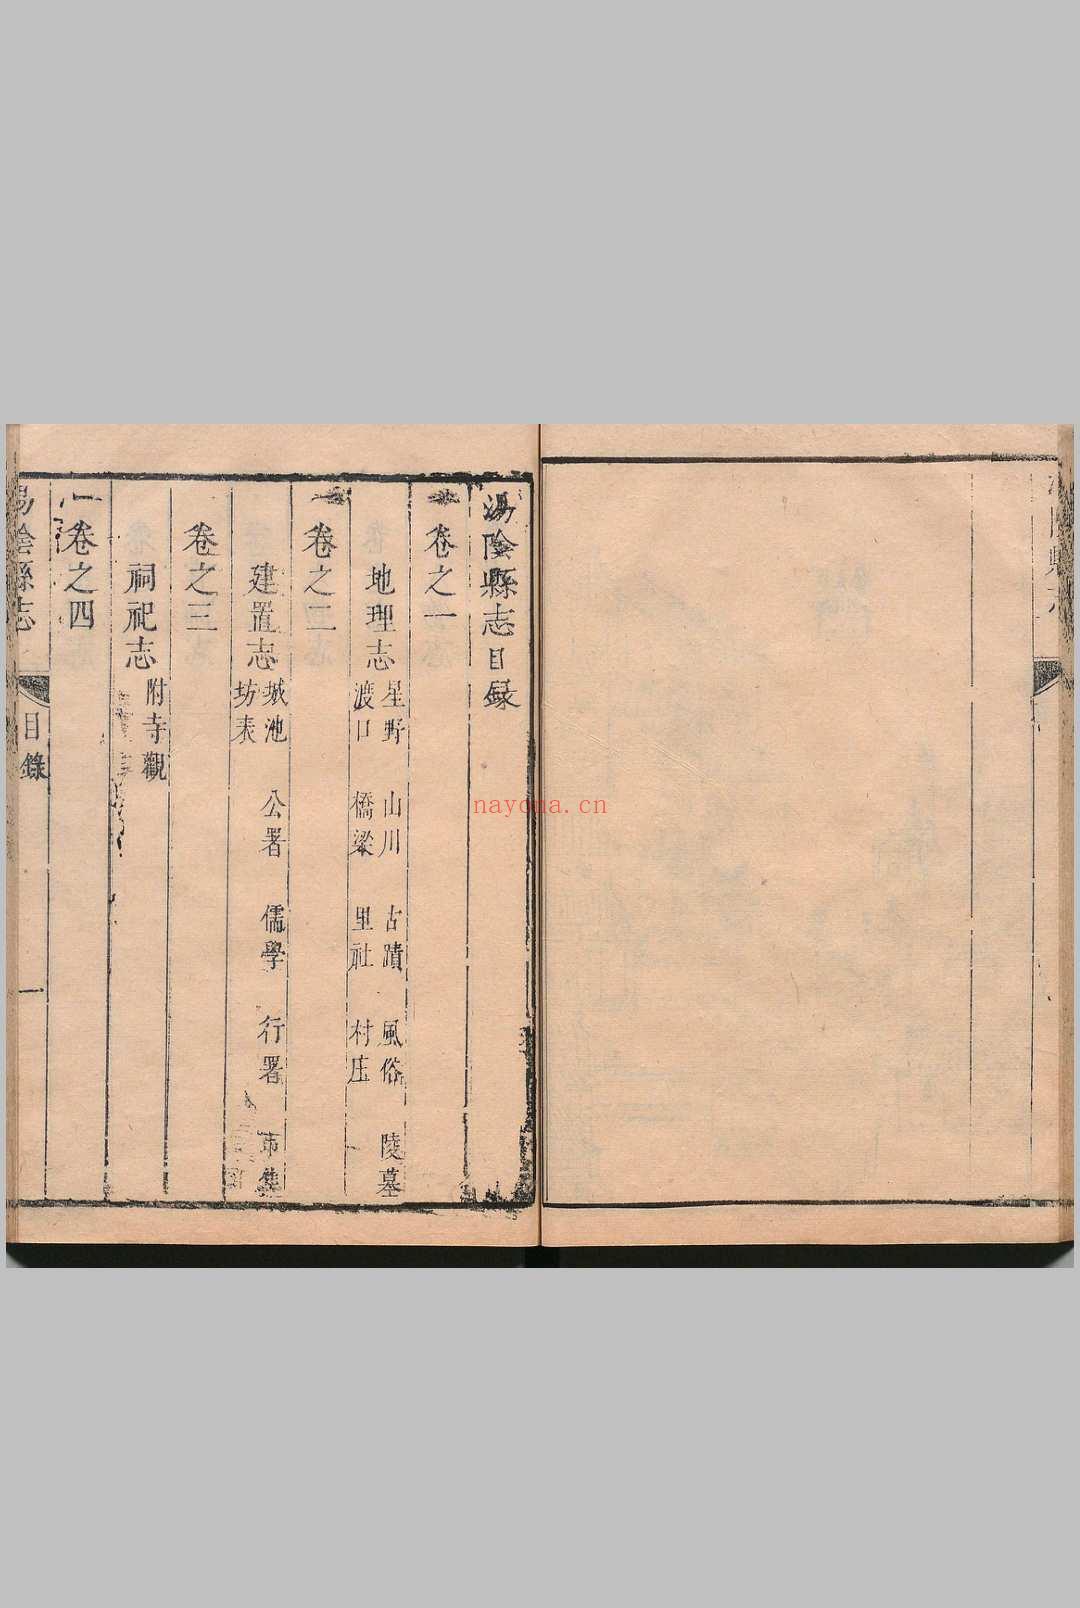 湯陰縣志目録
卷之一
地理志
星野 山川 古蹟 風俗 陵墓
渡口 橋梁 里社 村庄
卷之二
建置志
城池 公署 儒學 行署 市集
坊表
卷之三
祠祀志 附寺觀
卷之四
湯陰縣志 目錄 一
nayona.cn